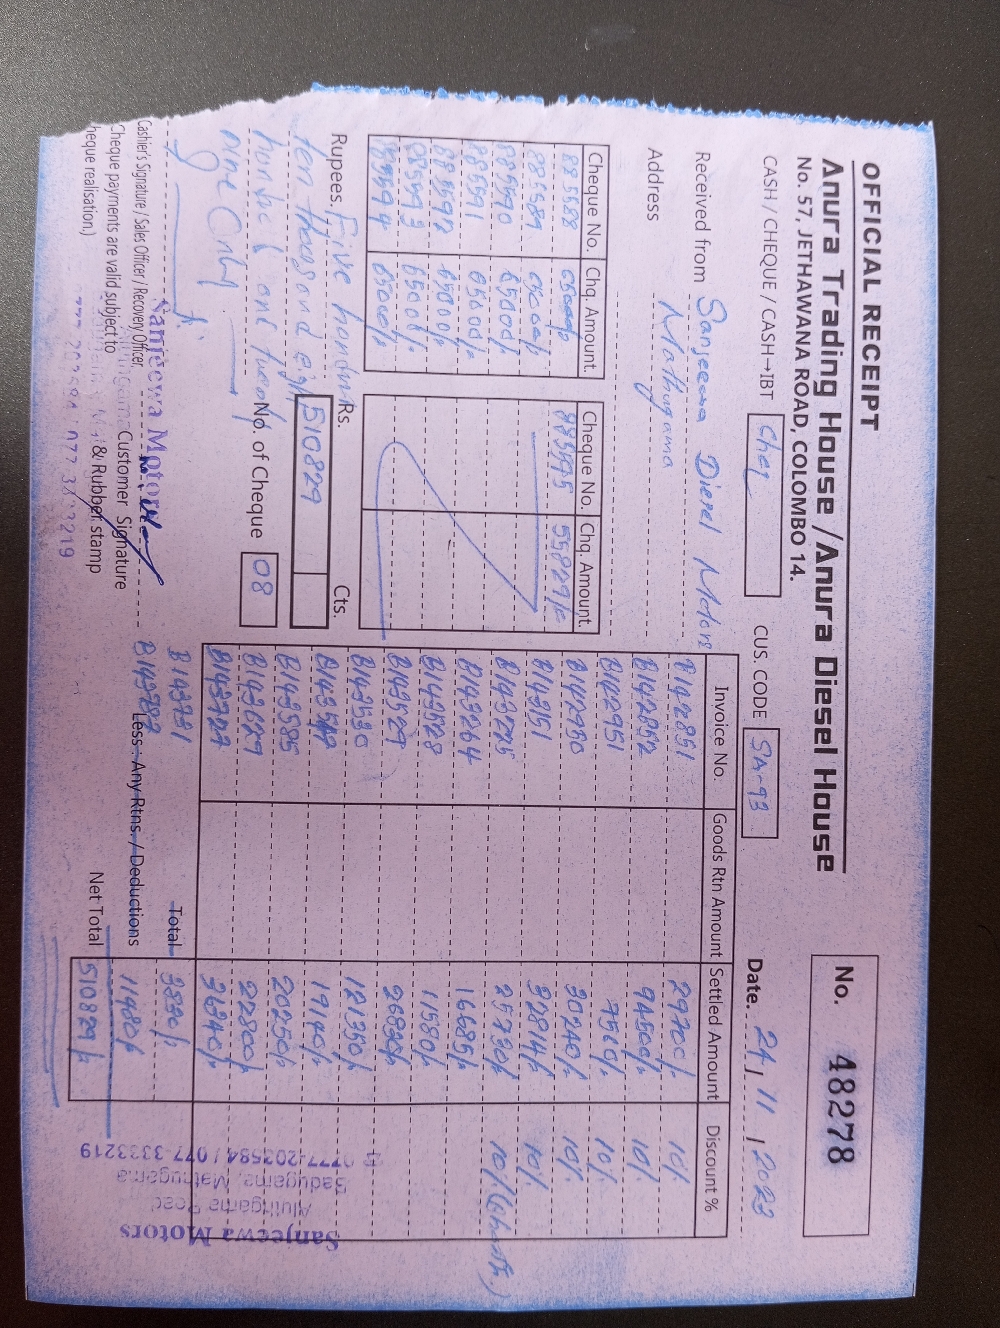 OFFICIAL RECEIPT
Anura Trading House / Anura Diesel House
No. 57, JETHAWANA ROAD, COLOMBO 14.
No. 48278
CASH / CHEQUE / CASH→IBT Cheq
CUS. CODE SA-93
Date. 24 / 11 / 2023
Received from Sanjeewa Diesel Motors
Address Mathugama
Cheque No. Chq. Amount. Cheque No. Chq. Amount.
885588 65000/- 885595 55829/-
885589 65000/-
885590 65000/-
885591 65000/-
885592 65000/-
885593 65000/-
885594 65000/-
Invoice No. Goods Rtn Amount Settled Amount Discount %
B142851 29700/- 10%
B142852 94500/- 10%
B142951 7560/- 10%
B142950 30240/- 10%
B143151 32814/- 10%
25730/- 10%
B143264 16685/-
B143528 11580/-
B143529 26820/-
B143530 121350/-
B143549 19140/-
B143585 20250/-
B143629 22800/-
B143727 36340/-
B143781 Total
B143782 Less : Any Rtns. / Deductions 11480/-
Net Total 510829/-
Rupees. Five hundred
ten thousand eight
hundred and twenty
nine Only
Rs. Cts.
510829
No. of Cheque 08
Cashier's Signature / Sales Officer / Recovery Officer.
Cheque payments are valid subject to
heque realisation.)
Sanjeewa Motors
Customer Signature
& Rubber stamp
Sanjeewa Motors
Aluthgama Road
Badugama, Matugama
0777-203584 / 077-3333219